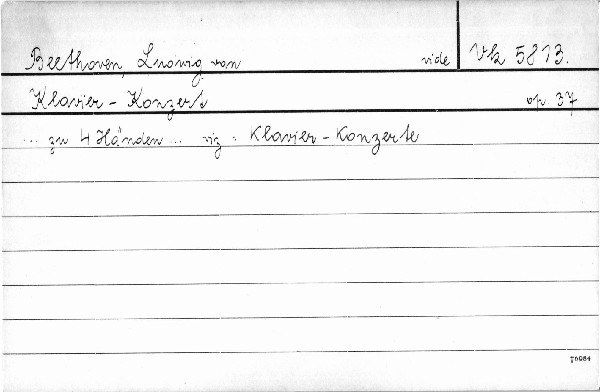 Beethoven, Ludwig van vide Vk 5813.
Klavier - Konzert op. 37
... zu 4 Händen ... viz. Klavier - Konzerte
T6984